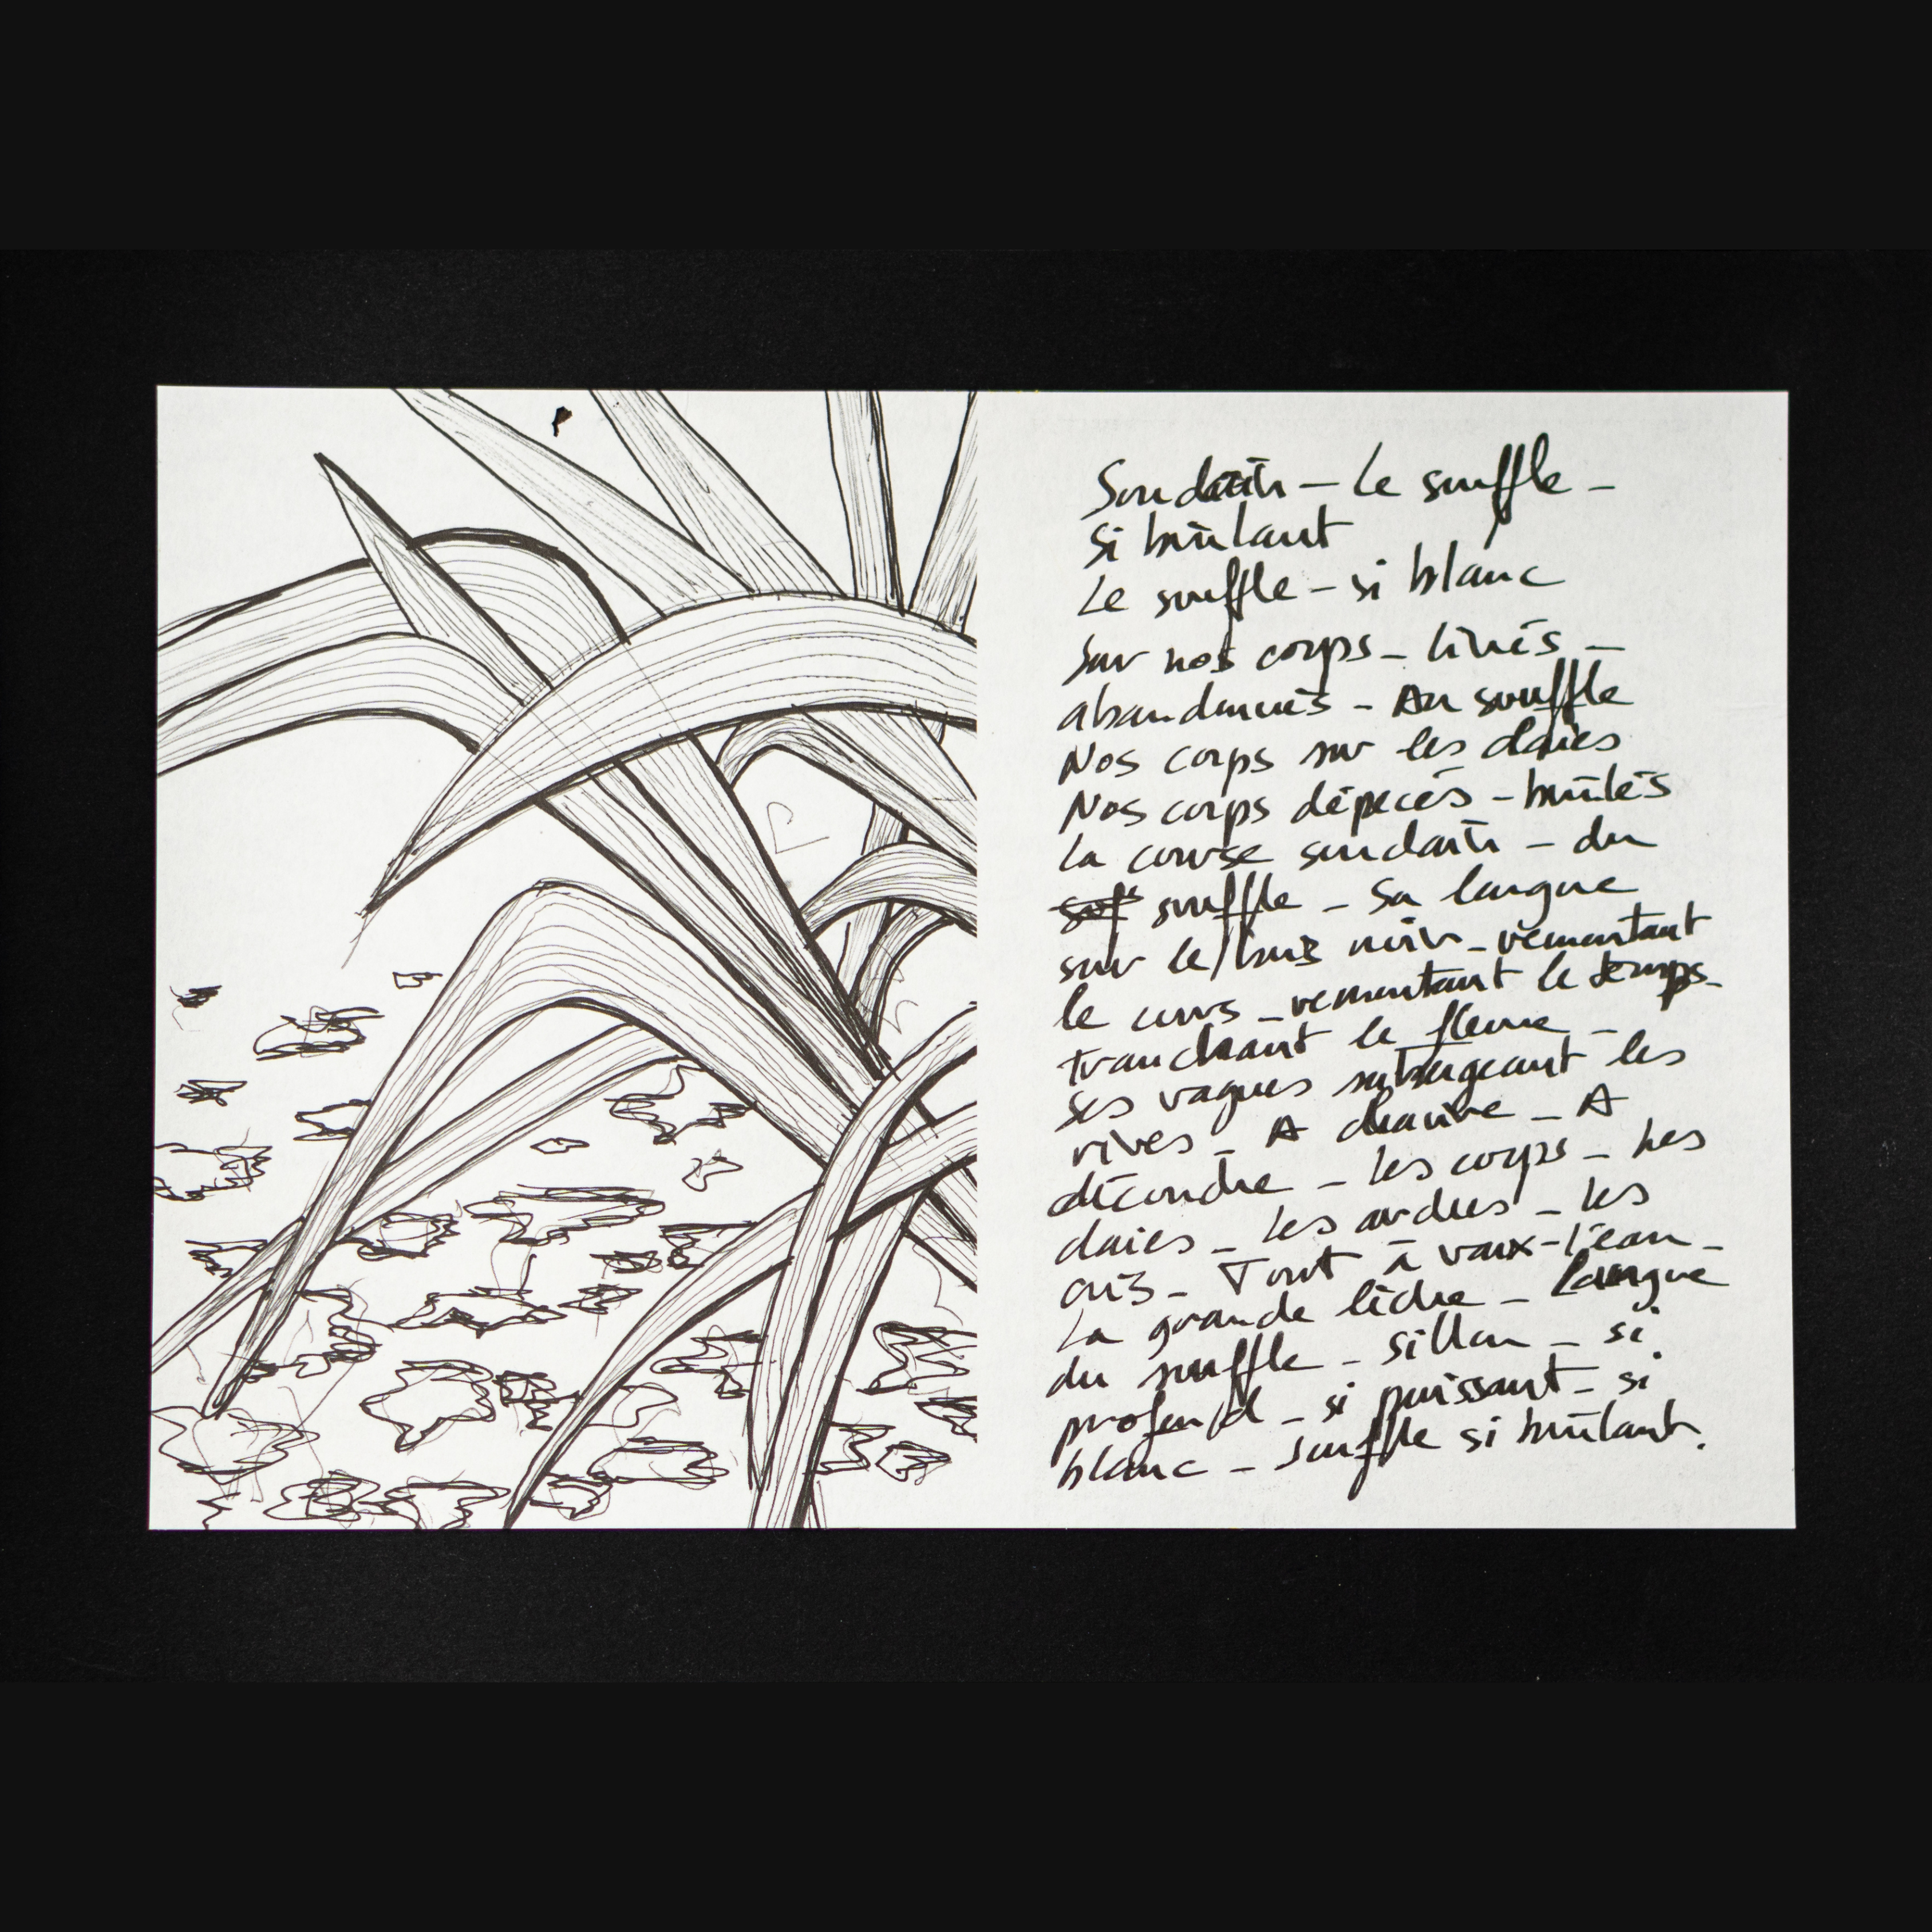 Soudain – Le souffle –
si brûlant
Le souffle – si blanc
Sur nos corps – livrés –
abandonnés – Au souffle
Nos corps sur les claies
Nos corps dépecés – brûlés
La course soudain – du
souffle – Sa langue
sur le bois noir – remontant
le cours – remontant le temps –
tranchant le fleuve –
ses vagues submergeant les
rives – A – A
découdre – Les corps – Les
claies – Les arches – Les
cris – Tout à vaux-l'eau –
La grande lèche – Langue
du souffle – sillon – si
profond – si puissant – si
blanc – Souffle si brûlant.